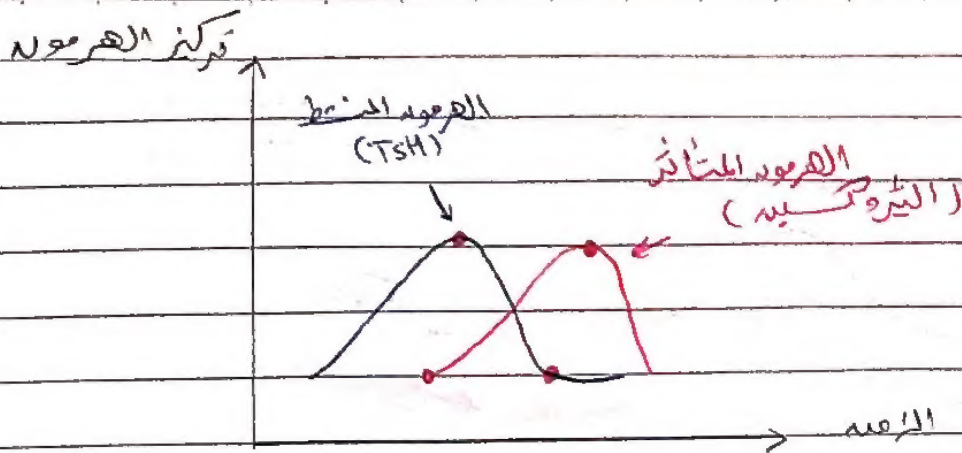 تركيز الهرمون
الهرمون المنشط
(TSH)
الهرمون المتأثر
(الثيروكسين)
الزمن